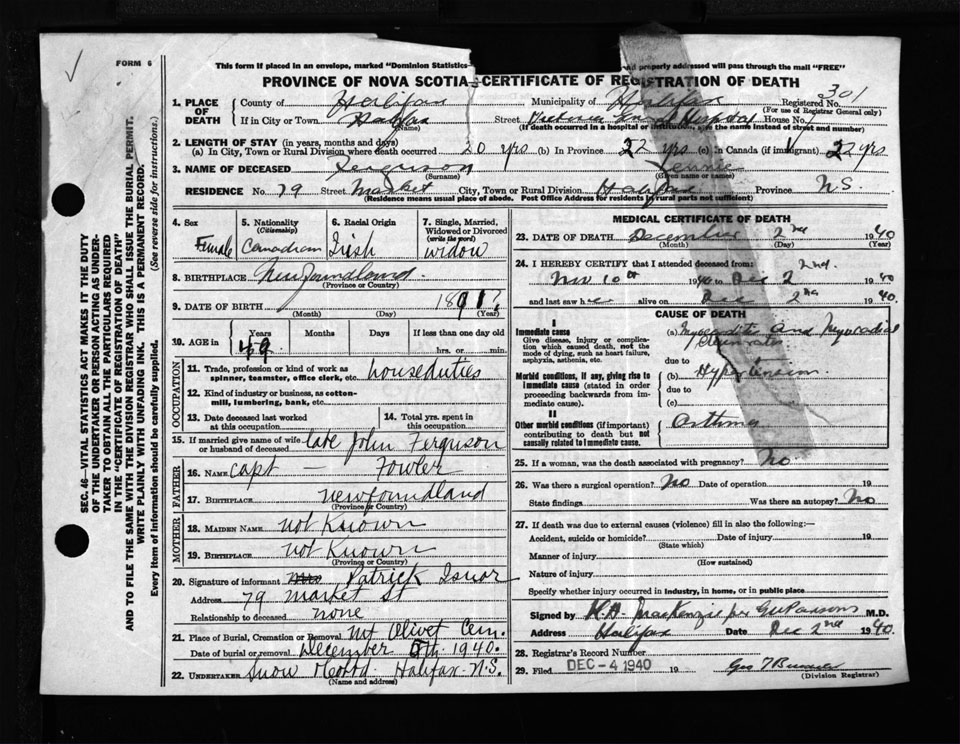 FORM 6
This form if placed in an envelope, marked "Dominion Statistics properly addressed will pass through the mail "FREE"
PROVINCE OF NOVA SCOTIA—CERTIFICATE OF REGISTRATION OF DEATH
Registered No. 301
(For use of Registrar General only)
1. PLACE OF DEATH
County of Halifax Municipality of Halifax
If in City or Town Halifax Street Victoria General Hospital House No.
(Name) (If death occurred in a hospital or institution, give the name instead of street and number)
2. LENGTH OF STAY (in years, months and days)
(a) In City, Town or Rural Division where death occurred 20 yrs (b) In Province 22 yrs (c) In Canada (if immigrant) 22 yrs
3. NAME OF DECEASED Ferguson Jennie
(Surname) (Given name or names)
RESIDENCE No. 79 Street Market City, Town or Rural Division Halifax Province N.S.
(Residence means usual place of abede. Post Office Address for residents in rural parts not sufficient)
4. Sex Female
5. Nationality (Citizenship) Canadian
6. Racial Origin Irish
7. Single, Married, Widowed or Divorced (write the word) widow
8. BIRTHPLACE Newfoundland
(Province or Country)
9. DATE OF BIRTH 1891?
(Month) (Day) (Year)
10. AGE in Years 49 Months Days If less than one day old hrs. or min.
OCCUPATION
11. Trade, profession or kind of work as spinner, teamster, office clerk, etc. houseduties
12. Kind of industry or business, as cotton-mill, lumbering, bank, etc.
13. Date deceased last worked at this occupation
14. Total yrs. spent in this occupation
15. If married give name of wife or husband of deceased late John Ferguson
FATHER
16. NAME Capt — Fowler
17. BIRTHPLACE Newfoundland
(Province or Country)
MOTHER
18. MAIDEN NAME not Known
19. BIRTHPLACE not Known
(Province or Country)
20. Signature of informant Patrick Isnor
Address 79 Market St
Relationship to deceased none
21. Place of Burial, Cremation or Removal Mt Olivet Cem.
Date of burial or removal December 5th. 1940.
22. UNDERTAKER Snow & Co Ltd. Halifax N.S.
(Name and address)
MEDICAL CERTIFICATE OF DEATH
23. DATE OF DEATH December 2nd 1940
(Month) (Day) (Year)
24. I HEREBY CERTIFY that I attended deceased from:
Nov 10th 1940 to Dec 2 2nd. 1940
and last saw her alive on Dec 2nd 1940.
CAUSE OF DEATH
I
Immediate cause
Give disease, injury or complication which caused death, not the mode of dying, such as heart failure, asphyxia, asthenia, etc.
(a) Myocarditis and Myocardial
due to
Morbid conditions, if any, giving rise to Immediate cause (stated in order proceeding backwards from immediate cause).
(b) Hypertension
due to
(c)
II
Other morbid conditions (if important) contributing to death but not causally related to immediate cause.
Asthma
25. If a woman, was the death associated with pregnancy? No
26. Was there a surgical operation? No Date of operation 19
State findings Was there an autopsy? No
27. If death was due to external causes (violence) fill in also the following:—
Accident, suicide or homicide? Date of injury 19
(State which)
Manner of injury
(How sustained)
Nature of injury
Specify whether injury occurred in industry, in home, or in public place
Signed by H.D. MacKenzie per G.W. Parsons M.D.
Address Halifax Date Dec 2nd 1940.
28. Registrar's Record Number
29. Filed DEC - 4 1940 19
(Division Registrar)
SEC. 46—VITAL STATISTICS ACT MAKES IT THE DUTY
OF THE UNDERTAKER OR PERSON ACTING AS UNDER-
TAKER TO OBTAIN ALL THE PARTICULARS REQUIRED
IN THE "CERTIFICATE OF REGISTRATION OF DEATH"
AND TO FILE THE SAME WITH THE DIVISION REGISTRAR WHO SHALL ISSUE THE BURIAL PERMIT.
WRITE PLAINLY WITH UNFADING INK. THIS IS A PERMANENT RECORD.
Every item of information should be carefully supplied. (See reverse side for instructions.)